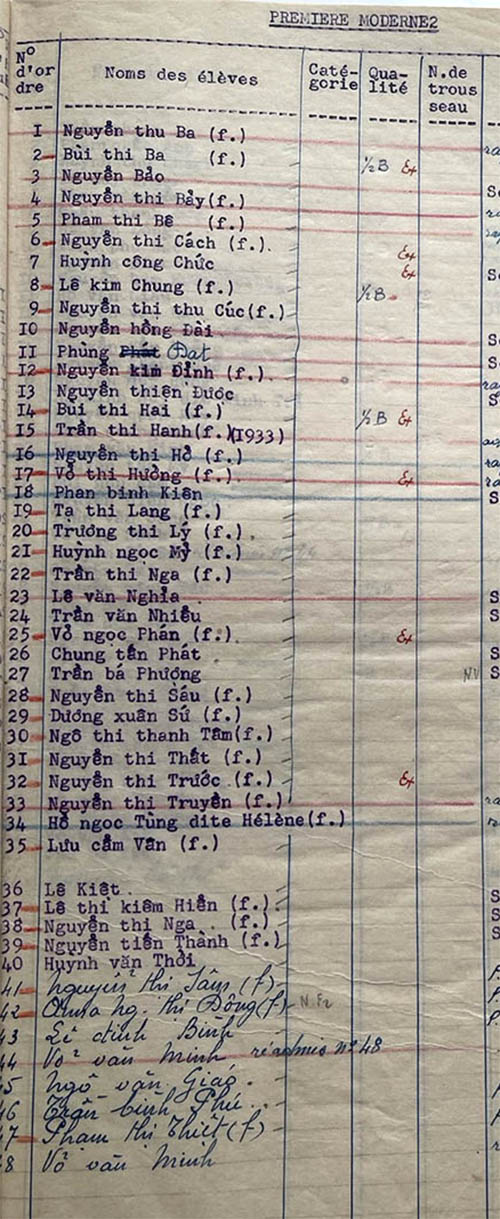 PREMIERE MODERNE2
N° d'or dre Noms des élèves Caté-gorie Qua-lité N.de trous seau
1 Nguyễn thu Ba (f.)
2 Bùi thi Ba (f.) ½B Ex
3 Nguyễn Bảo
4 Nguyễn thi Bảy(f.)
5 Pham thi Bê (f.)
6 Nguyễn thi Cách (f.). Ex
7 Huỳnh công Chức Ex
8 Lê kim Chung (f.) ½B
9 Nguyễn thị thu Cúc(f.)
10 Nguyễn hồng Đài
11 Phùng Phát Đạt
12 Nguyễn kim Đỉnh (f.)
13 Nguyễn thiện Được
14 Bùi thi Hai (f.) ½B Ex
15 Trần thi Hanh(f.)(1933)
16 Nguyễn thi Hồ (f.)
17 Vỏ thi Hưởng (f.) Ex
18 Phan bình Kiên
19 Tạ thi Lang (f.)
20 Trương thi Lý (f.).
21 Huỳnh ngọc Mỹ (f.)
22 Trần thị Nga (f.)
23 Lê văn Nghỉa
24 Trần văn Nhiều
25 Vỏ ngọc Phán (f.) Ex
26 Chung tấn Phát
27 Trần bá Phương NV
28 Nguyễn thi Sáu (f.)
29 Dương xuân Sứ (f.)
30 Ngô thi thanh Tâm(f.)
31 Nguyễn thi Thất (f.)
32 Nguyễn thi Trước (f.) Ex
33 Nguyễn thi Truyền (f.)
34 Hồ ngọc Tùng dite Hélène(f.)
35 Lưu cẩm Vân (f.)
36 Lê Kiệt.
37 Lê thị kiêm Hiền (f.)
38 Nguyễn thị Nga (f.)
39 Nguyễn tiến Thành (f.)
40 Huynh văn Thời
41 Nguyễn thi Tâm (f)
42 ng. thi Đông(f) N.F2
43 Lê đình Bình
44 Võ văn Minh réadmis n° 48
45 Ngô văn Giáo.
46 Trần bình Phú
47 Pham thi Thiết (f)
48 Võ văn Minh